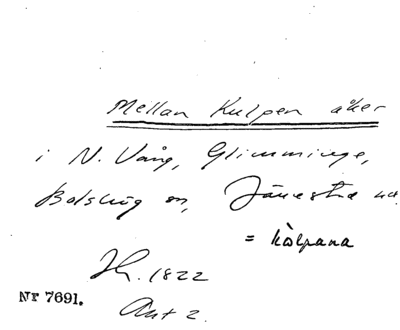 Mellan Kulpen åker
i N. Vång, Glimminge,
Bolshög sn, Järrestad
= kålpana
1822
Nr 7691.
Akt 2.